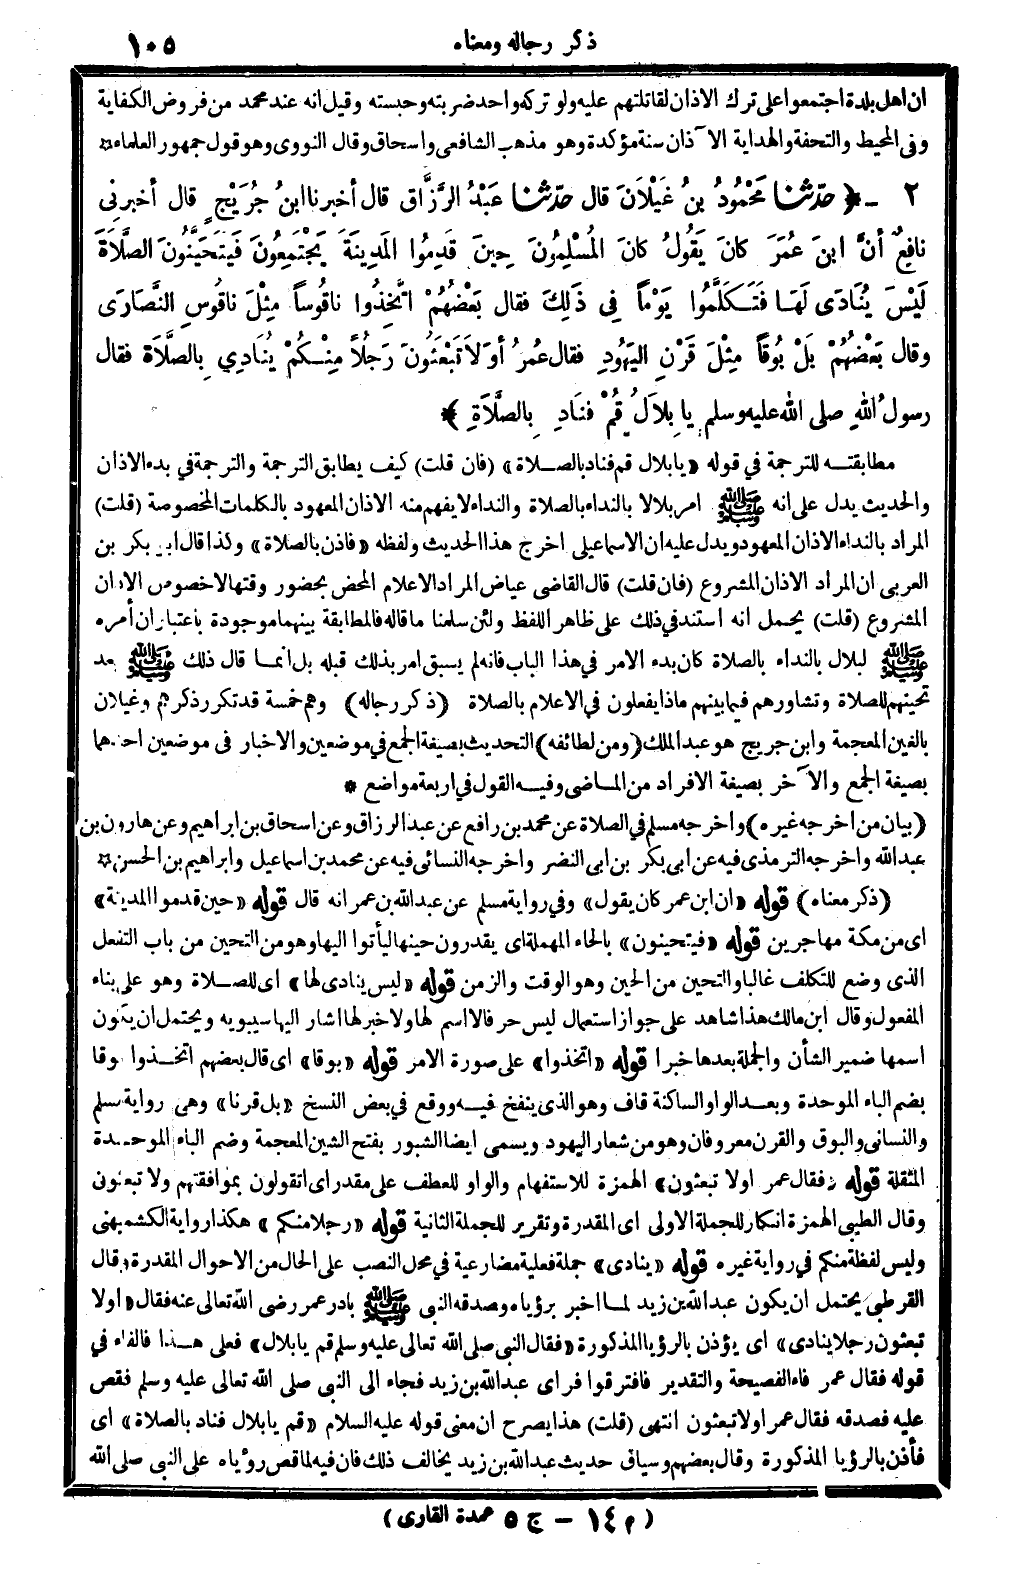 ذكر رجاله ومعناه ١٠٥
ان اهل بلدة اجتمعوا على ترك الاذان لقاتلتهم عليه ولو تركه واحد ضربته وحبسته وقيل انه عند محمد من فروض الكفاية
وفى المحيط والتحفة والهداية الآذان سنة مؤكدة وهو مذهب الشافعى واسحاق وقال النووى وهو قول جمهور العلماء *
٢ ـ ﴿ حدّثنا مَحْمُودُ بنُ غَيْلَانَ قال حدّثنا عَبْدُ الرَّزَّاقِ قال أخبرنا ابنُ جُرَيْجٍ قال أخبرني
نافِعٌ أنَّ ابنَ عُمَرَ كانَ يَقُولُ كانَ المُسْلِمُونَ حِينَ قَدِمُوا المَدِينَةَ يَجْتَمِعُونَ فَيَتَحَيَّنُونَ الصَّلَاةَ
لَيْسَ يُنَادَى لَهَا فَتَكَلَّمُوا يَوْماً فِي ذَلِكَ فقال بَعْضُهُمْ اتَّخِذُوا ناقُوساً مِثْلَ ناقُوسِ النَّصَارَى
وقال بَعْضُهُمْ بَلْ بُوقاً مِثْلَ قَرْنِ اليَهُودِ فقال عُمَرُ أوَلاَ تَبْعَثُونَ رَجُلاً مِنْكُمْ يُنَادِي بِالصَّلاَةِ فقال
رسولُ اللهِ صلى الله عليه وسلم يا بِلاَلُ قُمْ فَنَادِ بِالصَّلَاةِ ﴾
مطابقته للترجمة في قوله «يا بلال قم فناد بالصلاة» (فان قلت) كيف يطابق الترجمة والترجمة في بدء الاذان
والحديث يدل على انه ﷺ امر بلالا بالنداء بالصلاة والنداء لا يفهم منه الاذان المعهود بالكلمات المخصوصة (قلت)
المراد بالنداء الاذان المعهود ويدل عليه ان الاسماعيلى اخرج هذا الحديث ولفظه «فاذن بالصلاة» وكذا قال ابو بكر بن
العربى ان المراد الاذان المشروع (فان قلت) قال القاضى عياض المراد الاعلام المحض بحضور وقتها لا خصوص الاذان
المشروع (قلت) يحمل انه استند فى ذلك على ظاهر اللفظ ولئن سلمنا ما قاله فالمطابقة بينهما موجودة باعتبار ان أمره
ﷺ لبلال بالنداء بالصلاة كان بدء الامر في هذا الباب فانه لم يسبق امر بذلك قبله بل انما قال ذلك ﷺ بعد
تحينهم للصلاة وتشاورهم فيما بينهم ماذا يفعلون في الاعلام بالصلاة (ذكر رجاله) وهم خمسة قد تكرر ذكرهم وغيلان
بالغين المعجمة وابن جريج هو عبد الملك (ومن لطائفه) التحديث بصيغة الجمع في موضعين والاخبار فى موضعين احدهما
بصيغة الجمع والآخر بصيغة الافراد من الماضى وفيه القول في اربعة مواضع *
(بيان من اخرجه غيره) واخرجه مسلم في الصلاة عن محمد بن رافع عن عبد الرزاق وعن اسحاق بن ابراهيم وعن هارون بن
عبد الله واخرجه الترمذى فيه عن ابى بكر بن ابى النضر واخرجه النسائى فيه عن محمد بن اسماعيل وابراهيم بن الحسن *
(ذكر معناه) قوله «ان ابن عمر كان يقول» وفي رواية مسلم عن عبد الله بن عمر انه قال قوله «حين قدموا المدينة»
اى من مكة مهاجرين قوله «فيتحينون» بالحاء المهملة اى يقدرون حينها ليأتوا اليها وهو من التحين من باب التفعل
الذى وضع للتكلف غالبا والتحين من الحين وهو الوقت والزمن قوله «ليس ينادى لها» اى للصلاة وهو على بناء
المفعول وقال ابن مالك هذا شاهد على جواز استعمال ليس حرفا لا اسم لها ولا خبر لها اشار اليها سيبويه ويحتمل ان يكون
اسمها ضمير الشأن والجملة بعدها خبرا قوله «اتخذوا» على صورة الامر قوله «بوقا» اى قال بعضهم اتخذوا بوقا
بضم الباء الموحدة وبعد الواو الساكنة قاف وهو الذى ينفخ فيه ووقع في بعض النسخ «بل قرنا» وهى رواية مسلم
والنسائى والبوق والقرن معروفان وهو من شعار اليهود ويسمى ايضا الشبور بفتح الشين المعجمة وضم الباء الموحدة
المثقلة قوله «فقال عمر اولا تبعثون» الهمزة للاستفهام والواو للعطف على مقدر اى اتقولون بموافقتهم ولا تبعثون
وقال الطيبى الهمزة انكار للجملة الاولى اى المقدرة وتقرير للجملة الثانية قوله «رجلا منكم» هكذا رواية الكشميهنى
وليس لفظة منكم في رواية غيره قوله «ينادى» جملة فعلية مضارعية في محل النصب على الحال من الاحوال المقدرة وقال
القرطبى يحتمل ان يكون عبد الله بن زيد لما اخبر برؤياه وصدقه النبى ﷺ بادر عمر رضى الله تعالى عنه فقال «اولا
تبعثون رجلا ينادى» اى يؤذن بالرؤيا المذكورة «فقال النبى صلى الله تعالى عليه وسلم قم يا بلال» فعلى هذا فالفاء في
قوله فقال عمر فاء الفصيحة والتقدير فافترقوا فراى عبد الله بن زيد فجاء الى النبى صلى الله تعالى عليه وسلم فقص
عليه فصدقه فقال عمر اولا تبعثون انتهى (قلت) هذا يصرح ان معنى قوله عليه السلام «قم يا بلال فناد بالصلاة» اى
فأذن بالرؤيا المذكورة وقال بعضهم وسياق حديث عبد الله بن زيد يخالف ذلك فان فيه لما قص رؤياه على النبى صلى الله
(م ١٤ – ج ٥ عمدة القارى)